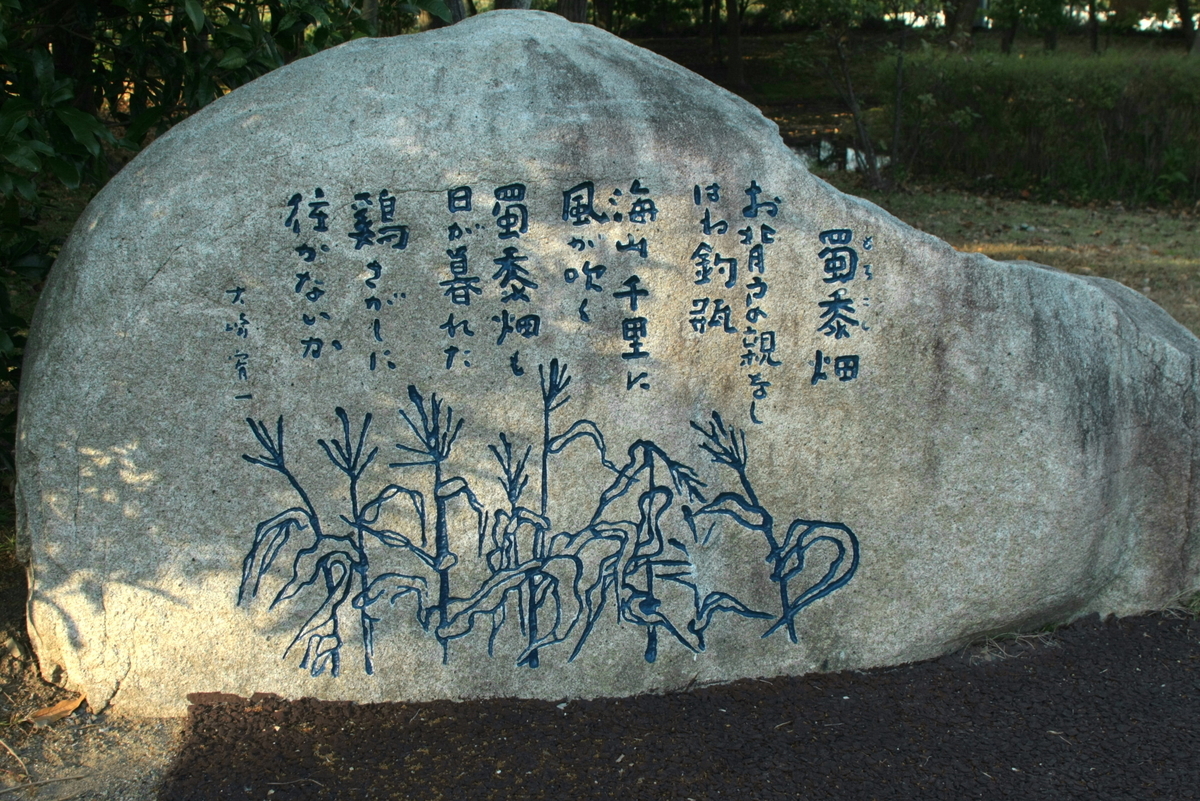 蜀黍畑
もろこし
お背戸の親なし
はね釣瓶
海山千里に
風が吹く
蜀黍畑も
日が暮れた
鶏さがしに
往かないか
大崎寛一